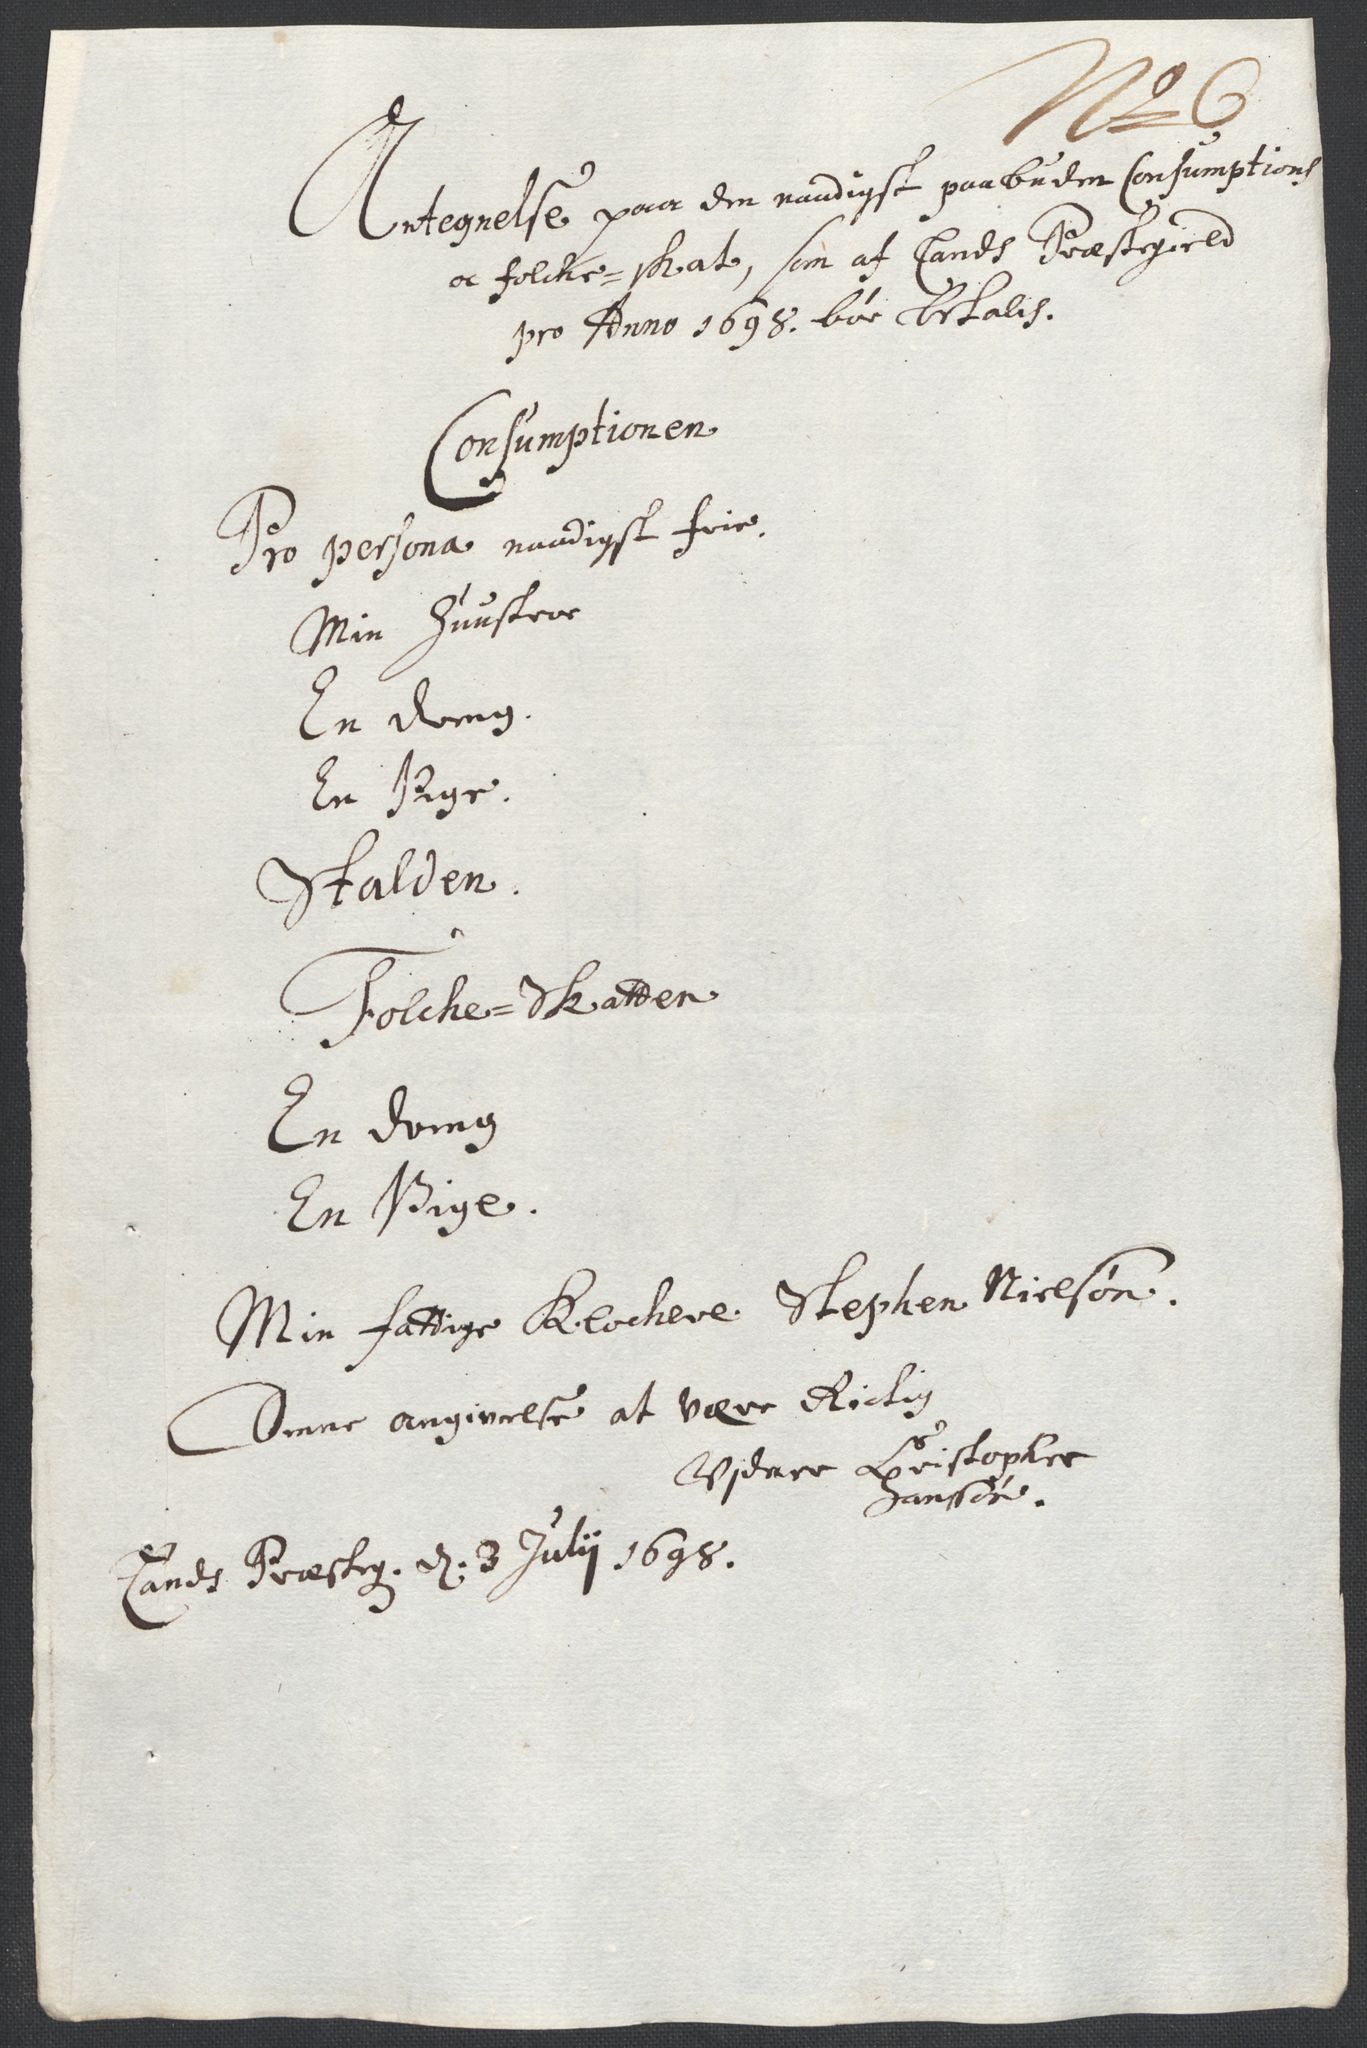 No 6
Antegnelse paa den naadigst paabuden Consumptions
oc folche=skat, som af Lands Præstegield
pro Anno 1698. bør Betalis.
Consumptionen
Pro persona naadigst frie.
Min Huustroe
En dreng.
En Pige.
Skalden.
Folche=Skatten
En dreng
En Pige.
Min fattige Klochere Stephen Nielsøn.
Denne angivelse at være Rictig
Vidner Christopher
Hanssøn.
Lands Præsteg. d: 3 Julij 1698.